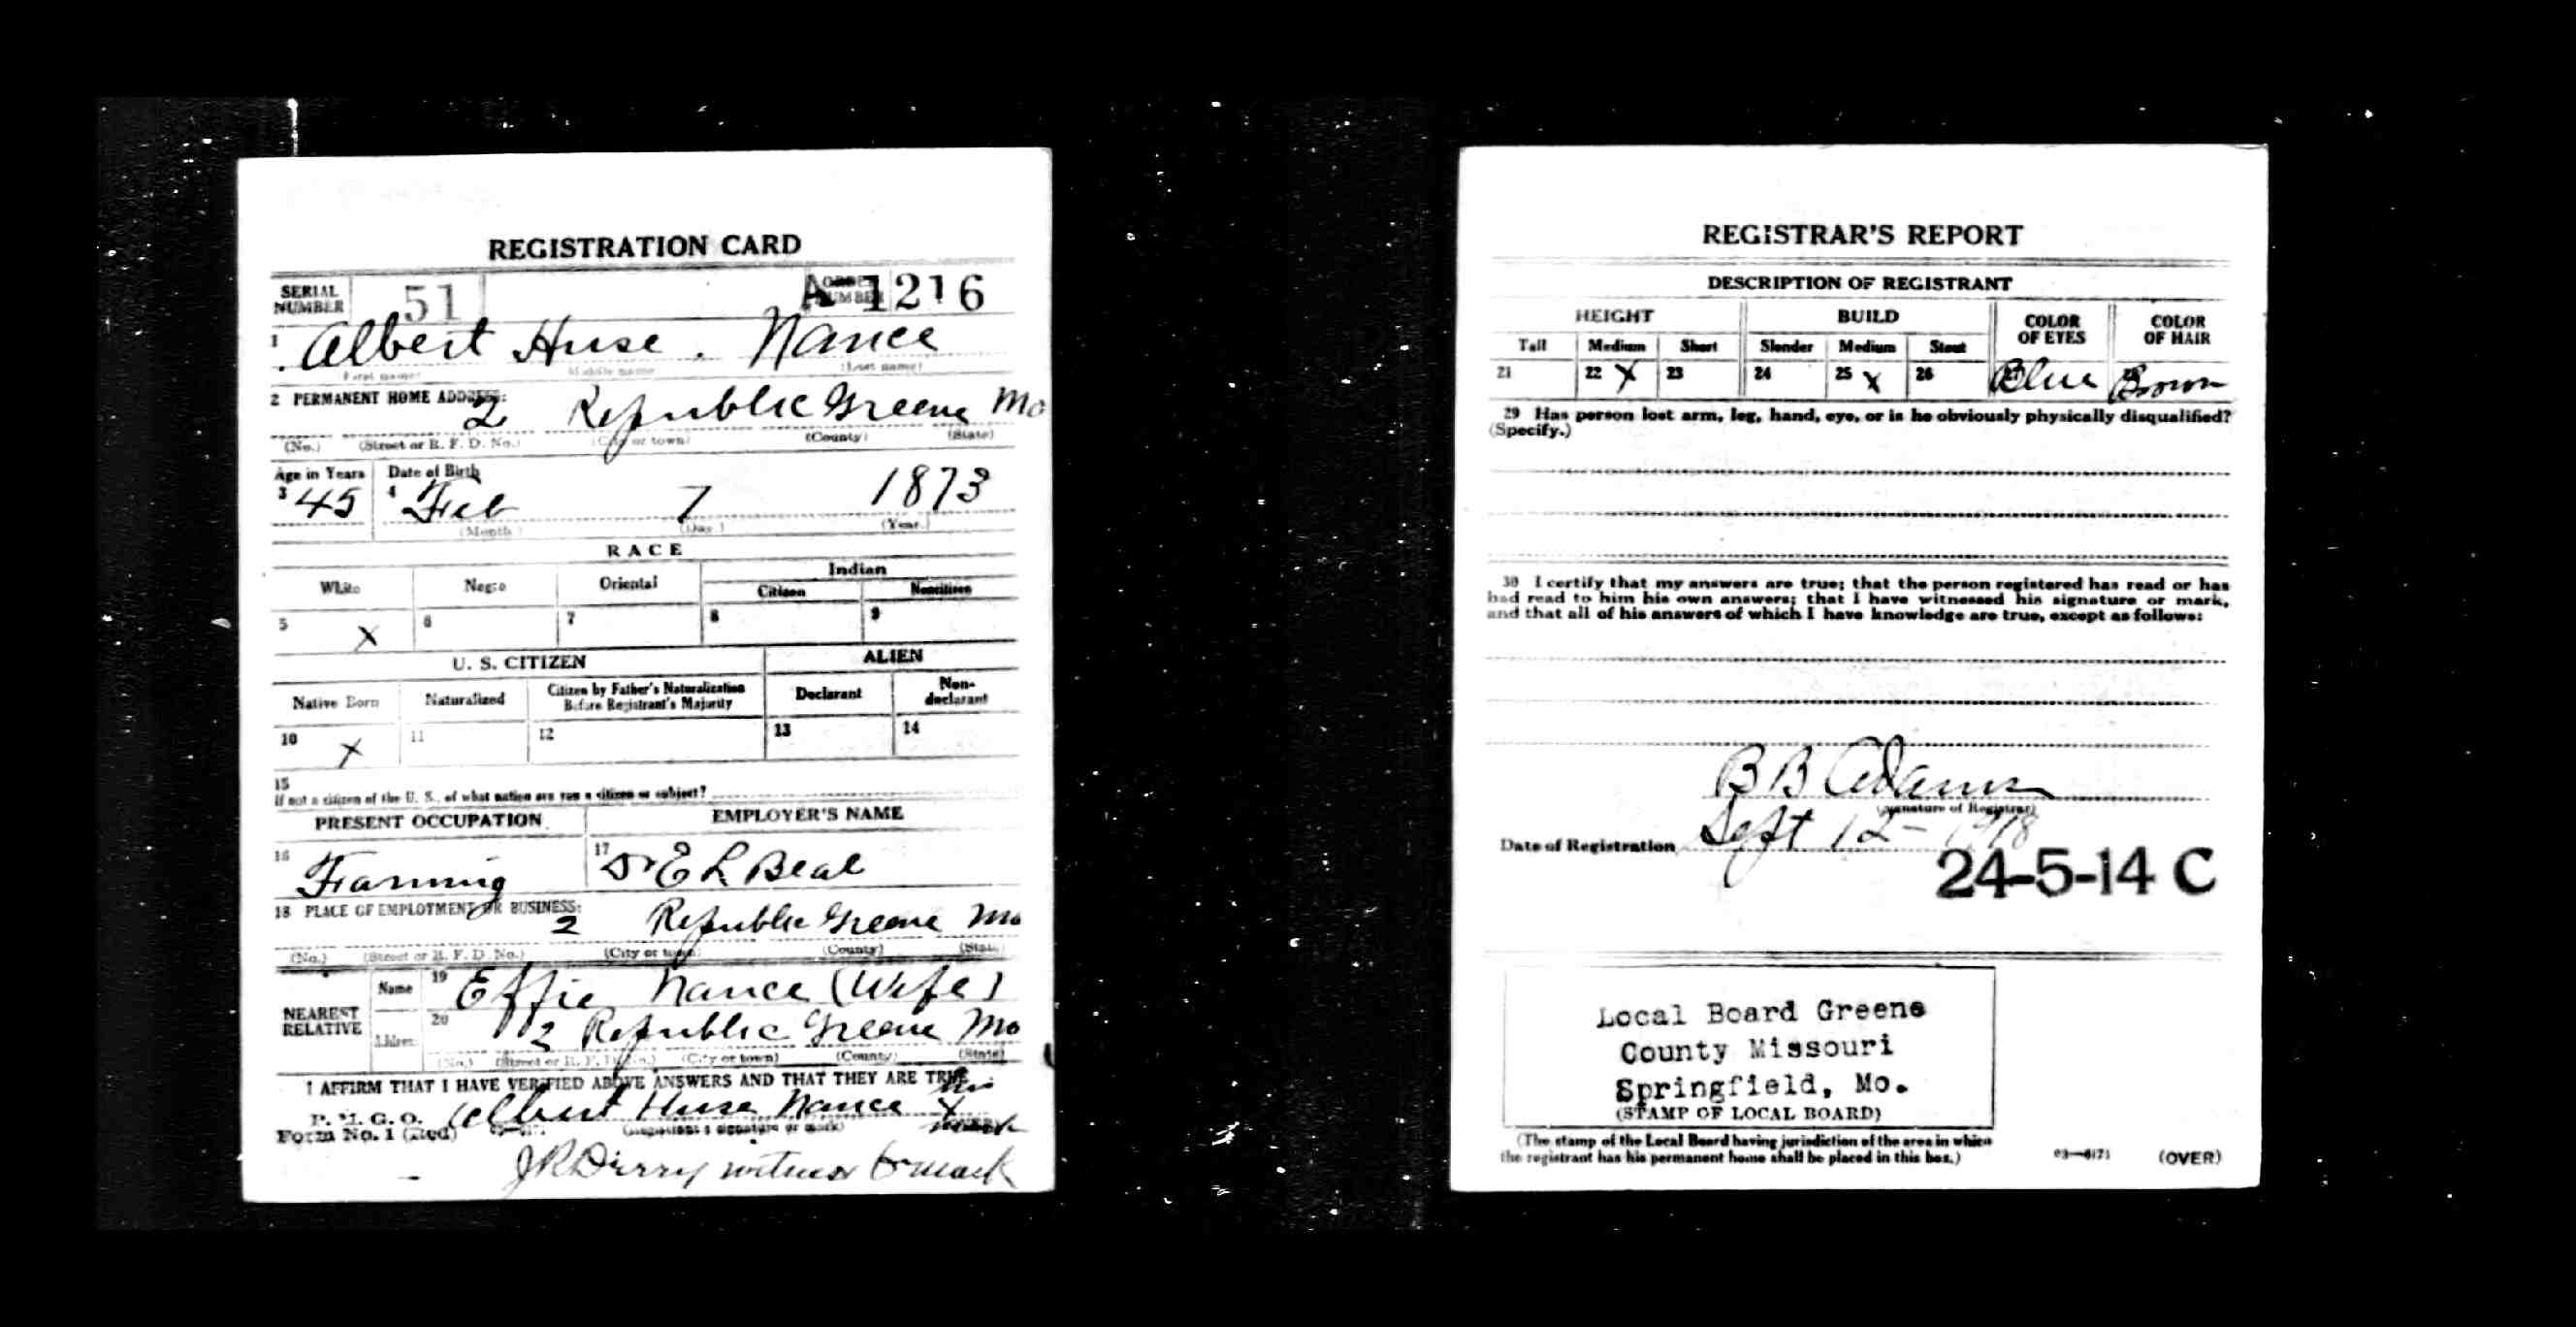 REGISTRATION CARD
SERIAL NUMBER 51 ORDER NUMBER A 1216
1 Albert Huse. Nance
(First name) (Middle name) (Last name)
2 PERMANENT HOME ADDRESS:
2 Republic Greene Mo
(No.) (Street or R. F. D. No.) (City or town) (County) (State)
Age in Years Date of Birth
3 45 4 Feb 7 1873
(Month) (Day) (Year)
RACE
White Negro Oriental Indian
Citizen Noncitizen
5 X 6 7 8 9
U. S. CITIZEN ALIEN
Native Born Naturalized Citizen by Father's Naturalization Before Registrant's Majority Declarant Non-declarant
10 X 11 12 13 14
15
If not a citizen of the U. S., of what nation are you a citizen or subject?
PRESENT OCCUPATION EMPLOYER'S NAME
16 Farming 17 Dr E L Beal
18 PLACE OF EMPLOYMENT OR BUSINESS:
2 Republic Greene Mo
(No.) (Street or R. F. D. No.) (City or town) (County) (State)
NEAREST RELATIVE Name 19 Effie Nance (Wife)
Address 20 2 Republic Greene Mo
(No.) (Street or R. F. D. No.) (City or town) (County) (State)
I AFFIRM THAT I HAVE VERIFIED ABOVE ANSWERS AND THAT THEY ARE TRUE
P. M. G. O.
Form No. 1 (Red) Albert Huse Nance his X mark
(Registrant's signature or mark)
witness to mark
REGISTRAR'S REPORT
DESCRIPTION OF REGISTRANT
HEIGHT BUILD COLOR OF EYES COLOR OF HAIR
Tall Medium Short Slender Medium Stout
21 22 X 23 24 25 X 26 Blue Brown
29 Has person lost arm, leg, hand, eye, or is he obviously physically disqualified?
(Specify.)
30 I certify that my answers are true; that the person registered has read or has
had read to him his own answers; that I have witnessed his signature or mark,
and that all of his answers of which I have knowledge are true, except as follows:
B B Adams
(Signature of Registrar)
Date of Registration Sept 12-1918
24-5-14 C
Local Board Greene
County Missouri
Springfield, Mo.
(STAMP OF LOCAL BOARD)
(The stamp of the Local Board having jurisdiction of the area in which
the registrant has his permanent home shall be placed in this box.)
03—6171 (OVER)